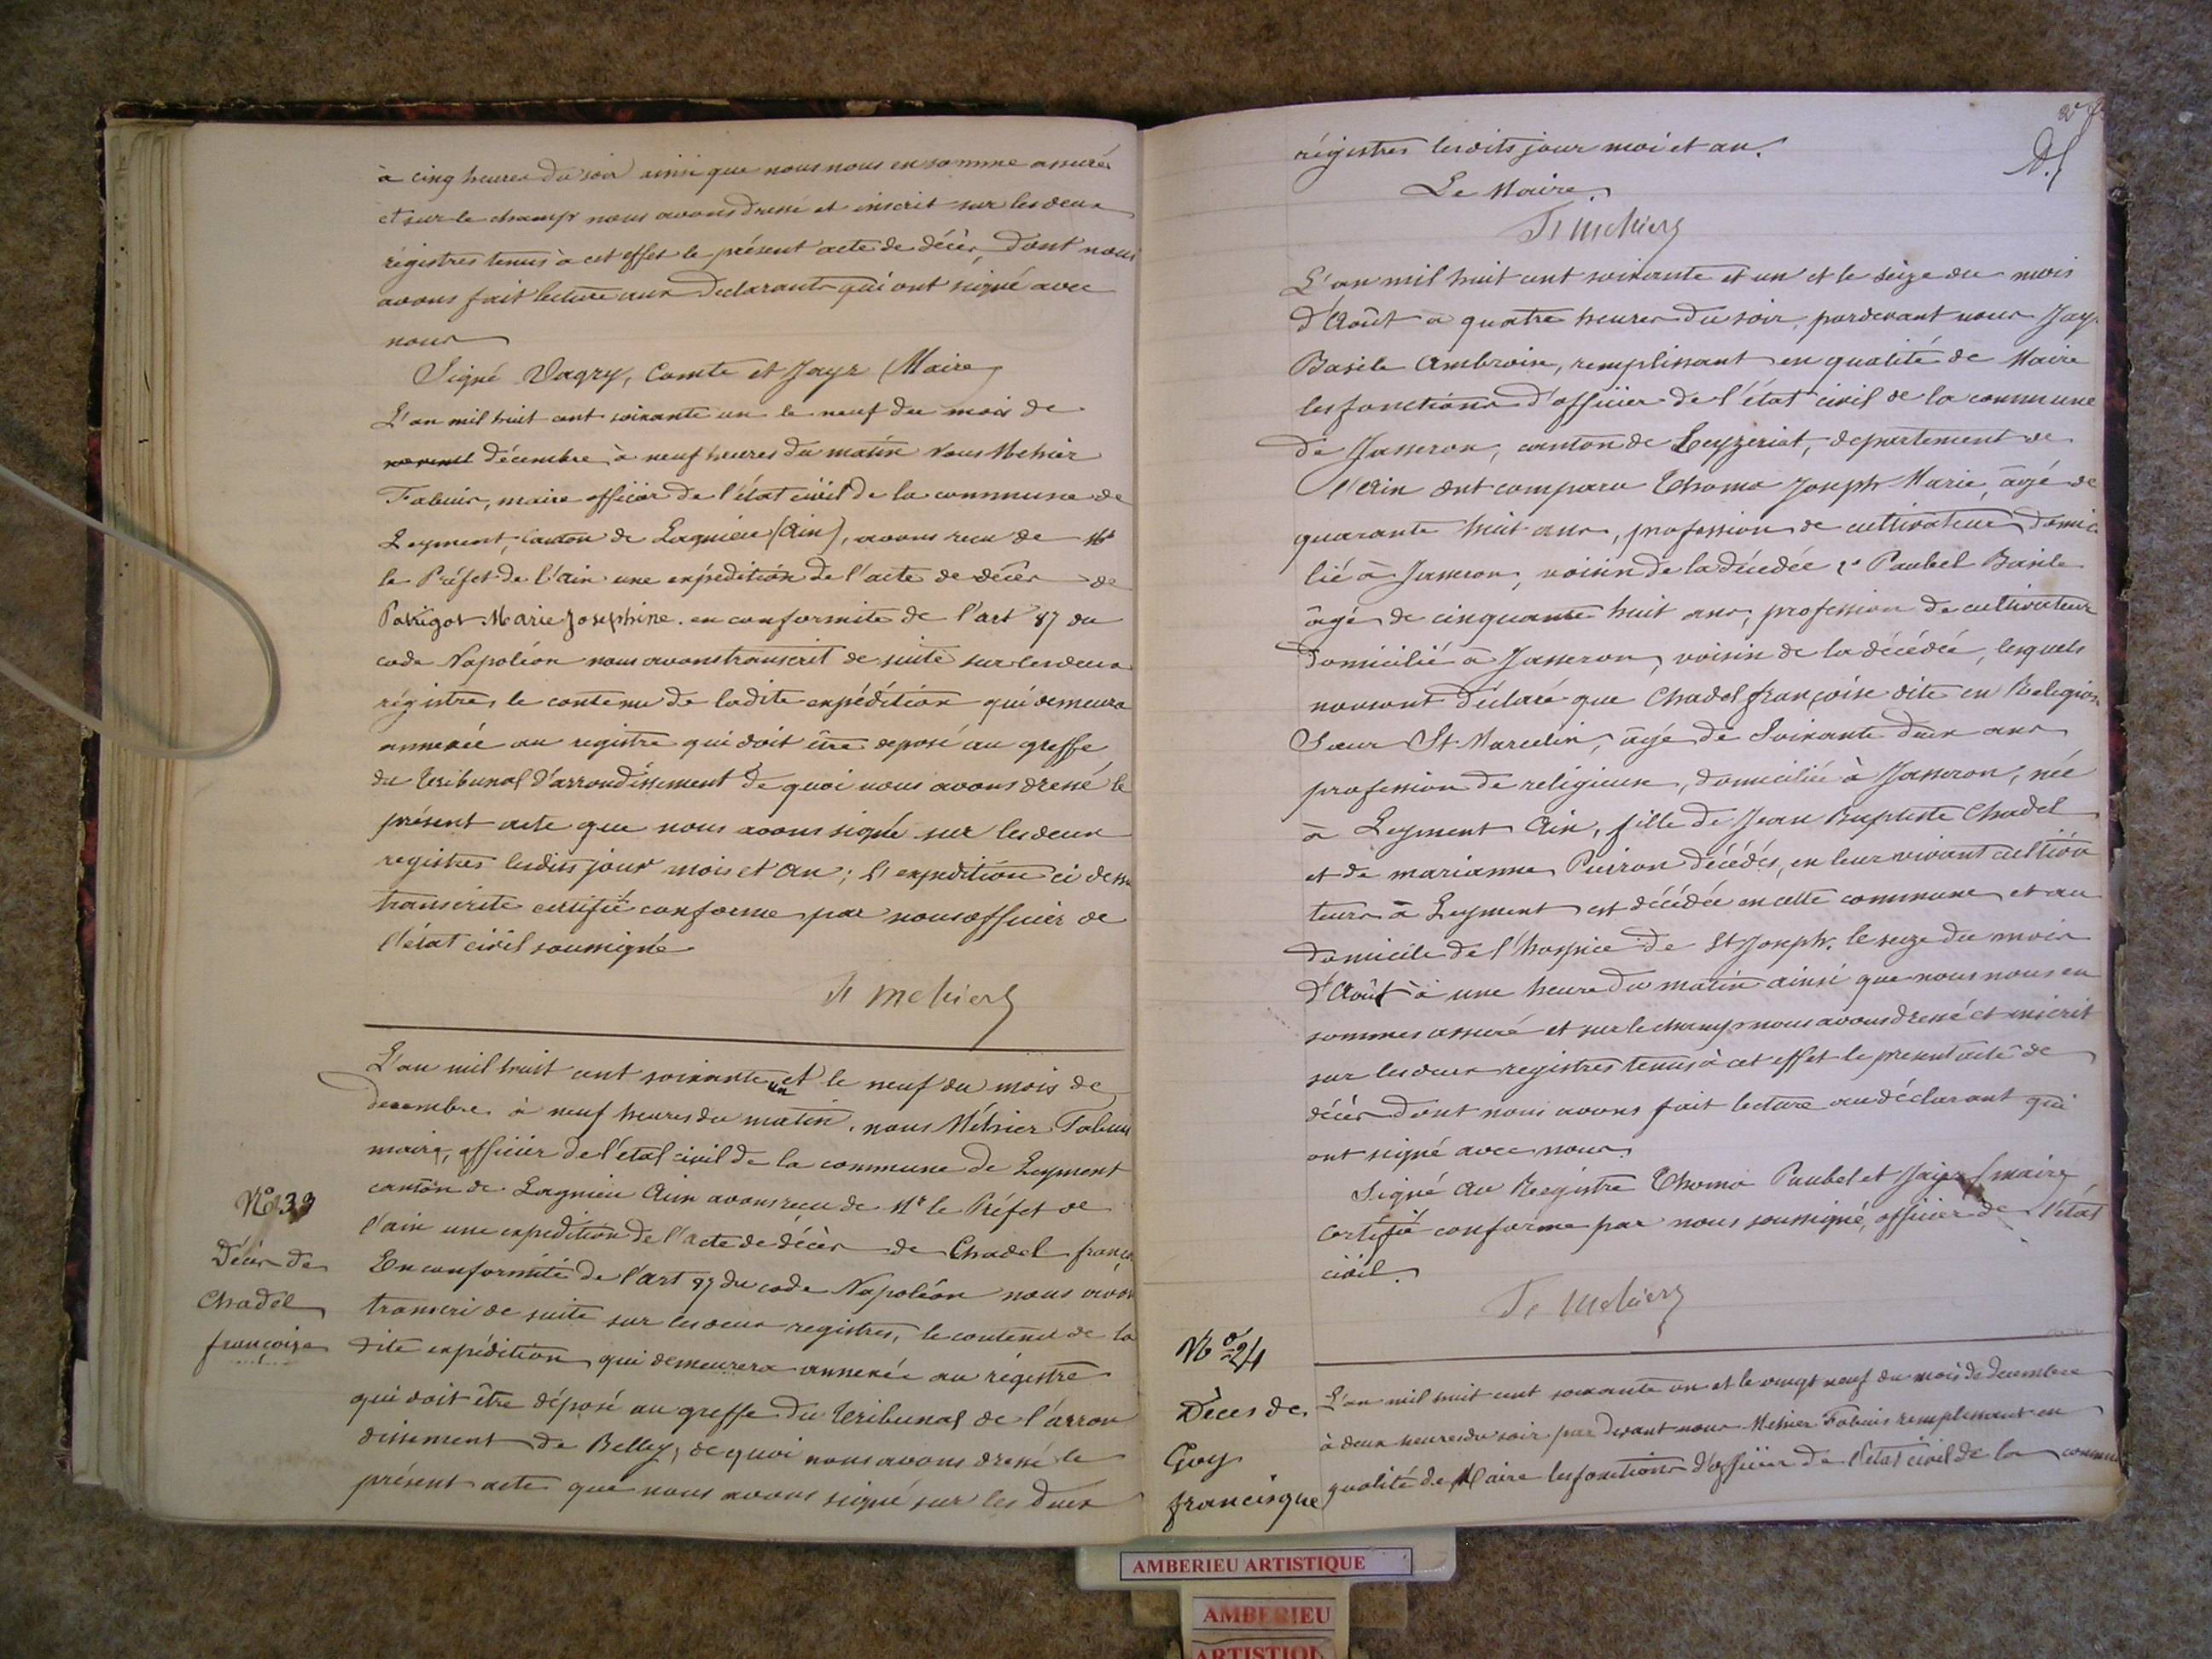 à cinq heures du soir ainsi que nous nous en somme assurés
et sur le champ nous avons dressé et inscrit sur les deux
régistres tenus à cet effet le présent acte de décès, dont nous
avons fait lecture aux declarants qui ont signé avec
nous
Signé Vagry, Comte et Jayr Maire
L'an mil huit cent soixante un le neuf du mois de
décembre à neuf heures du matin Nous Mehier
Fabius, maire officier de l'état civil de la commune de
Leyment, Canton de Lagnieu (Ain), avons recu de Mr
le Préfet de l'ain une expédition de l'acte de décès de
Marie Josephine. en conformité de l'art 87 du
code Napoléon nous avons transcrit de suite sur les deux
régistres le contenu de ladite expédition qui demeura
annexée au registre qui doit être deposé au greffe
du tribunal d'arrondissement de quoi nous avons dressé le
présent acte que nous avons signé sur les deux
registres lesdits jour mois et an; L'expedition ci dessu
transcrite certifié conforme par nous officier de
l'état civil soussigné
Fs Mehier
L'an mil huit cent soixante un et le neuf du mois de
decembre à neuf heures du matin, nous Méhier Fabius
maire, officier de l'état civil de la commune de Leyment
canton de Lagnieu Ain avons recu de Mr le Préfet de
l'ain une expedition de l'acte de décès de Chadel franço
En conformité de l'art 87 du code Napoléon nous avons
transcri de suite sur les deux registres, le contenu de la
dite expédition qui demeurera annexée au régistre
qui doit être déposé au greffe du tribunal de l'arron
dissement de Belley, de quoi nous avons dressé le
présent acte que nous avons signé sur les deux
Décès de
Chadel
françoise
régistres lesdits jour moi et an.
Le Maire
Fs Mehier
L'an mil huit cent soixante et un et le seize du mois
d'Août à quatre heures du soir, pardevant nous Jayr
Basile Ambroise, remplissant en qualité de Maire
les fonctions d'officier de l'état civil de la commune
de Jasseron, canton de Ceyzeriat, departement de
l'Ain ont comparu Thoma Joseph Marie, âgé de
quarante huit ans, profession de cultivateur domici
lié à Jasseron, voisin de la décédée 2o Paubel Basile
âgé de cinquante huit ans, profession de cultivateur
domicilié à Jasseron, voisin de la décédée, lesquels
nous ont déclaré que Chadel françoise dite en Religion
Sœur St Marcelin, âgé de Soixante deux ans
profession de religieuse, domiciliée à Jasseron, née
à Leyment Ain, fille de Jean Baptiste Chadel
et de marianne décédés, en leur vivant cultiva
teurs à Leyment est décédée en cette commune et au
domicile de l'hospice de St Joseph. le seize du mois
d'Août à une heure du matin ainsi que nous nous en
sommes assuré et sur le champ nous avons dressé et inscrit
sur les deux registres tenus à cet effet le present acte de
décès dont nous avons fait lecture au déclarant qui
ont signé avec nous.
Signé au Registre Thoma Paubel et Jayr maire
Certifié conforme par nous soussigné, officier de l'état
civil.
Fs Mehier
No 24
Décès de
Goy
francisque
L'an mil huit cent soixante un et le vingt neuf du mois de decembre
à deux heures du soir par devant nous Mehier Fabius remplissant en
qualité de Maire les fonctions d'officier de l'état civil de la commune
AMBERIEU ARTISTIQUE
AMBERIEU